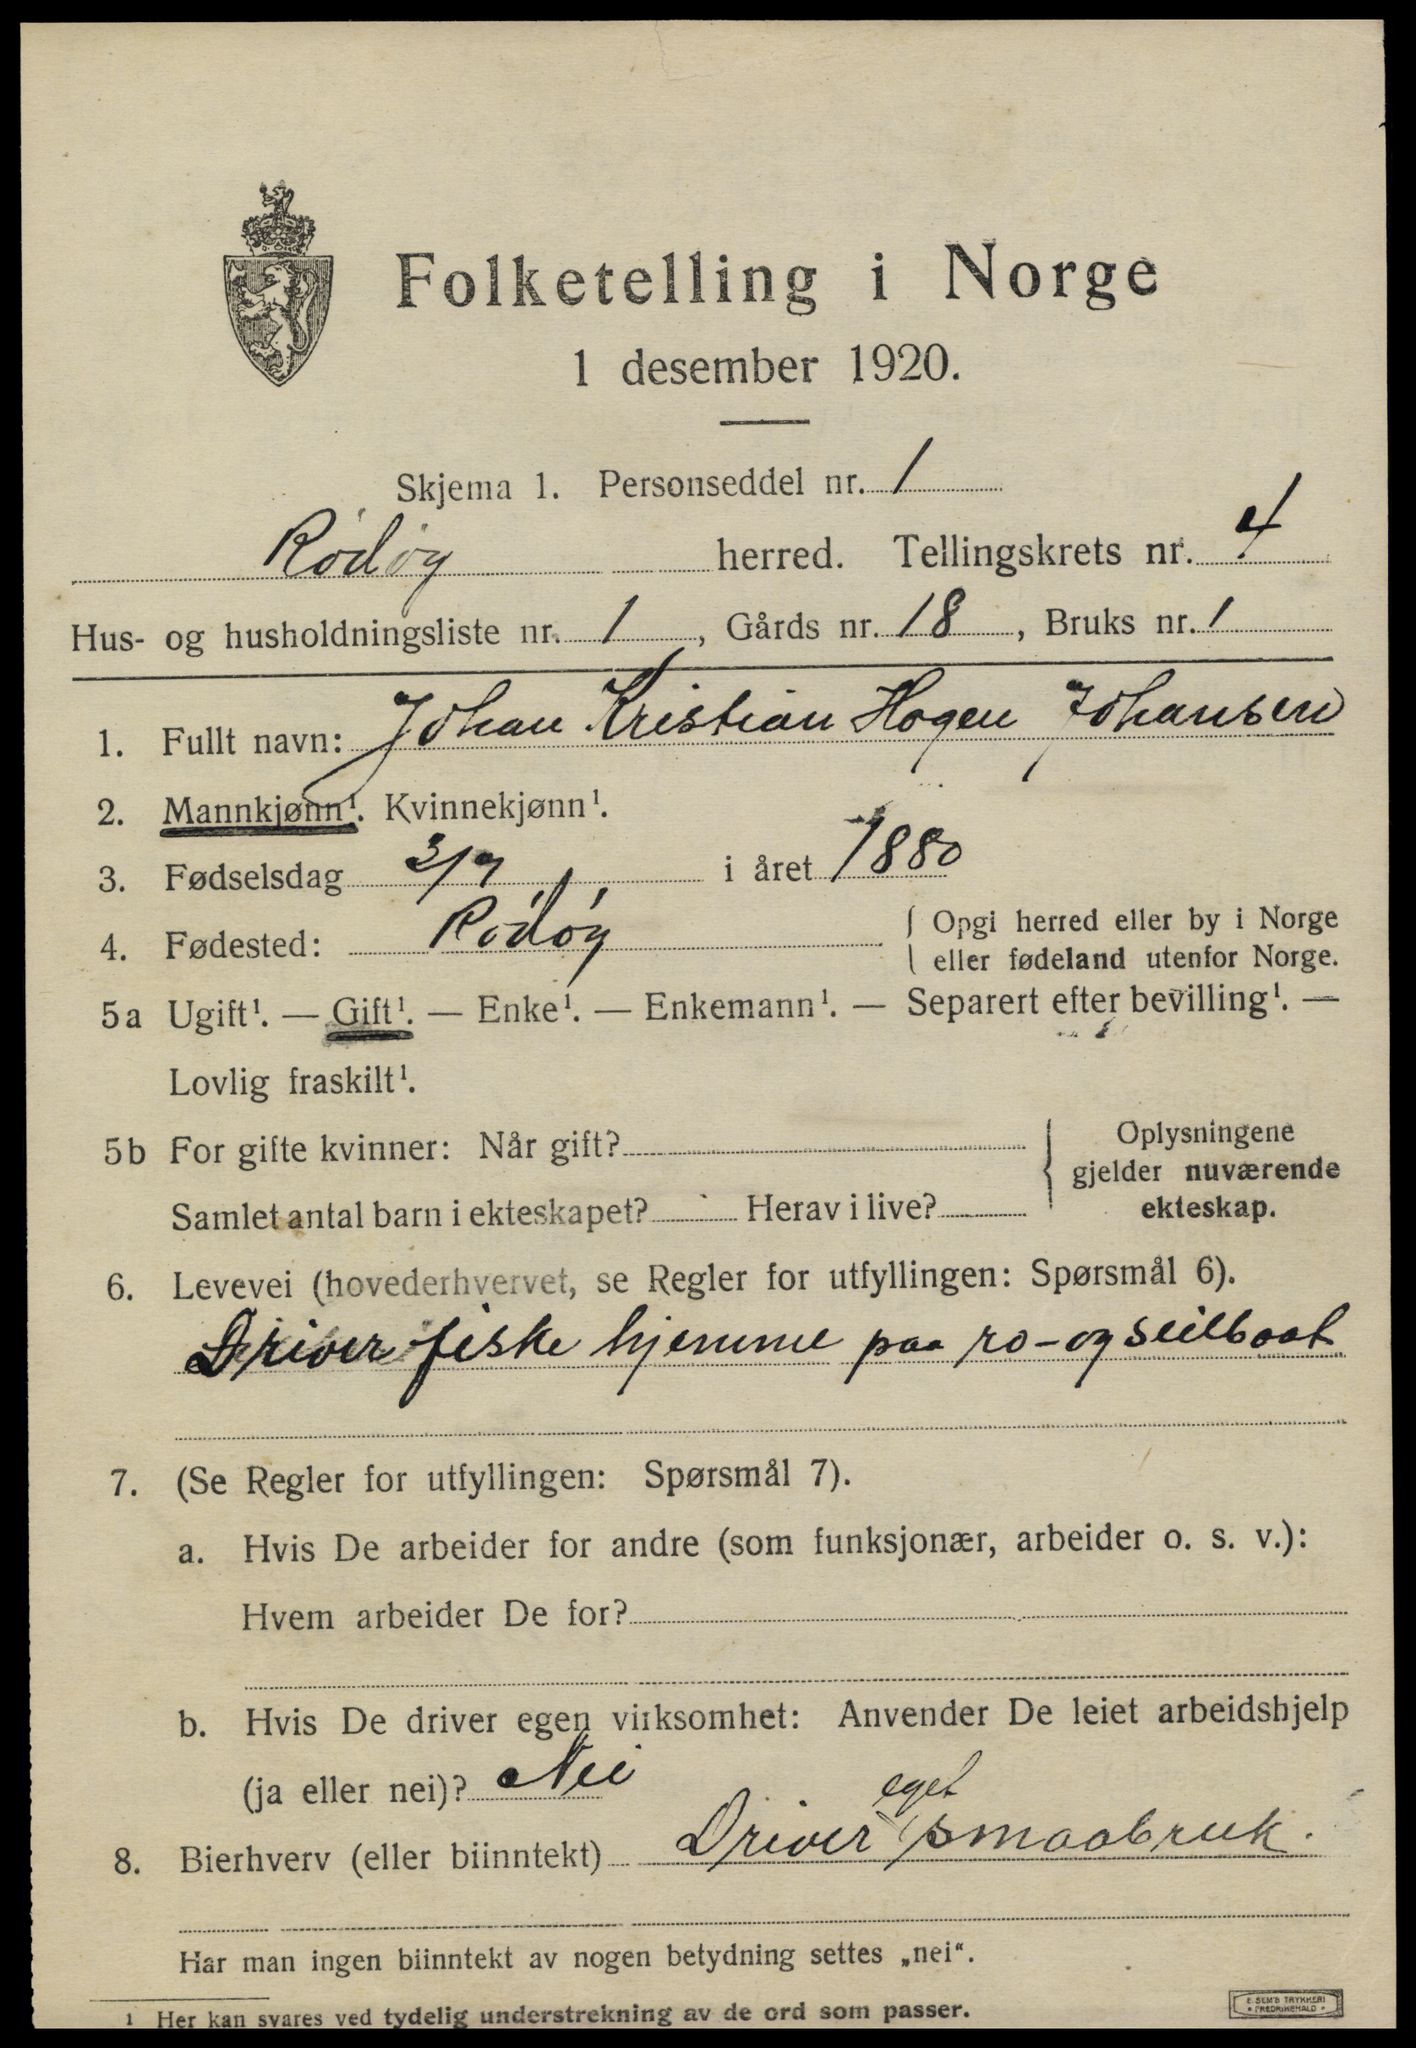 Folketelling i Norge
1 desember 1920.
Skjema 1. Personseddel nr. 1
Rødøy herred. Tellingskrets nr. 4
Hus- og husholdningsliste nr. 1, Gårds nr. 18, Bruks nr. 1
1. Fullt navn: Johan Kristian Hogen Johansen
2. Mannkjønn¹. Kvinnekjønn¹.
3. Fødselsdag 3/7 i året 1880
4. Fødested: Rødøy { Opgi herred eller by i Norge
eller fødeland utenfor Norge.
5a Ugift¹. — Gift¹. — Enke¹. — Enkemann¹. — Separert efter bevilling¹. —
Lovlig fraskilt¹.
5b For gifte kvinner: Når gift?
Samlet antal barn i ekteskapet? Herav i live?
Oplysningene
gjelder nuværende
ekteskap.
6. Levevei (hovederhvervet, se Regler for utfyllingen: Spørsmål 6).
Driver fiske hjemme paa ro- og seilbaat
7. (Se Regler for utfyllingen: Spørsmål 7).
a. Hvis De arbeider for andre (som funksjonær, arbeider o. s. v.):
Hvem arbeider De for?
b. Hvis De driver egen virksomhet: Anvender De leiet arbeidshjelp
(ja eller nei)? Nei
8. Bierhverv (eller biinntekt) Driver eget smaabruk.
Har man ingen biinntekt av nogen betydning settes „nei“.
1 Her kan svares ved tydelig understrekning av de ord som passer.
E. SEM'S TRYKKERI
FREDRIKSHALD